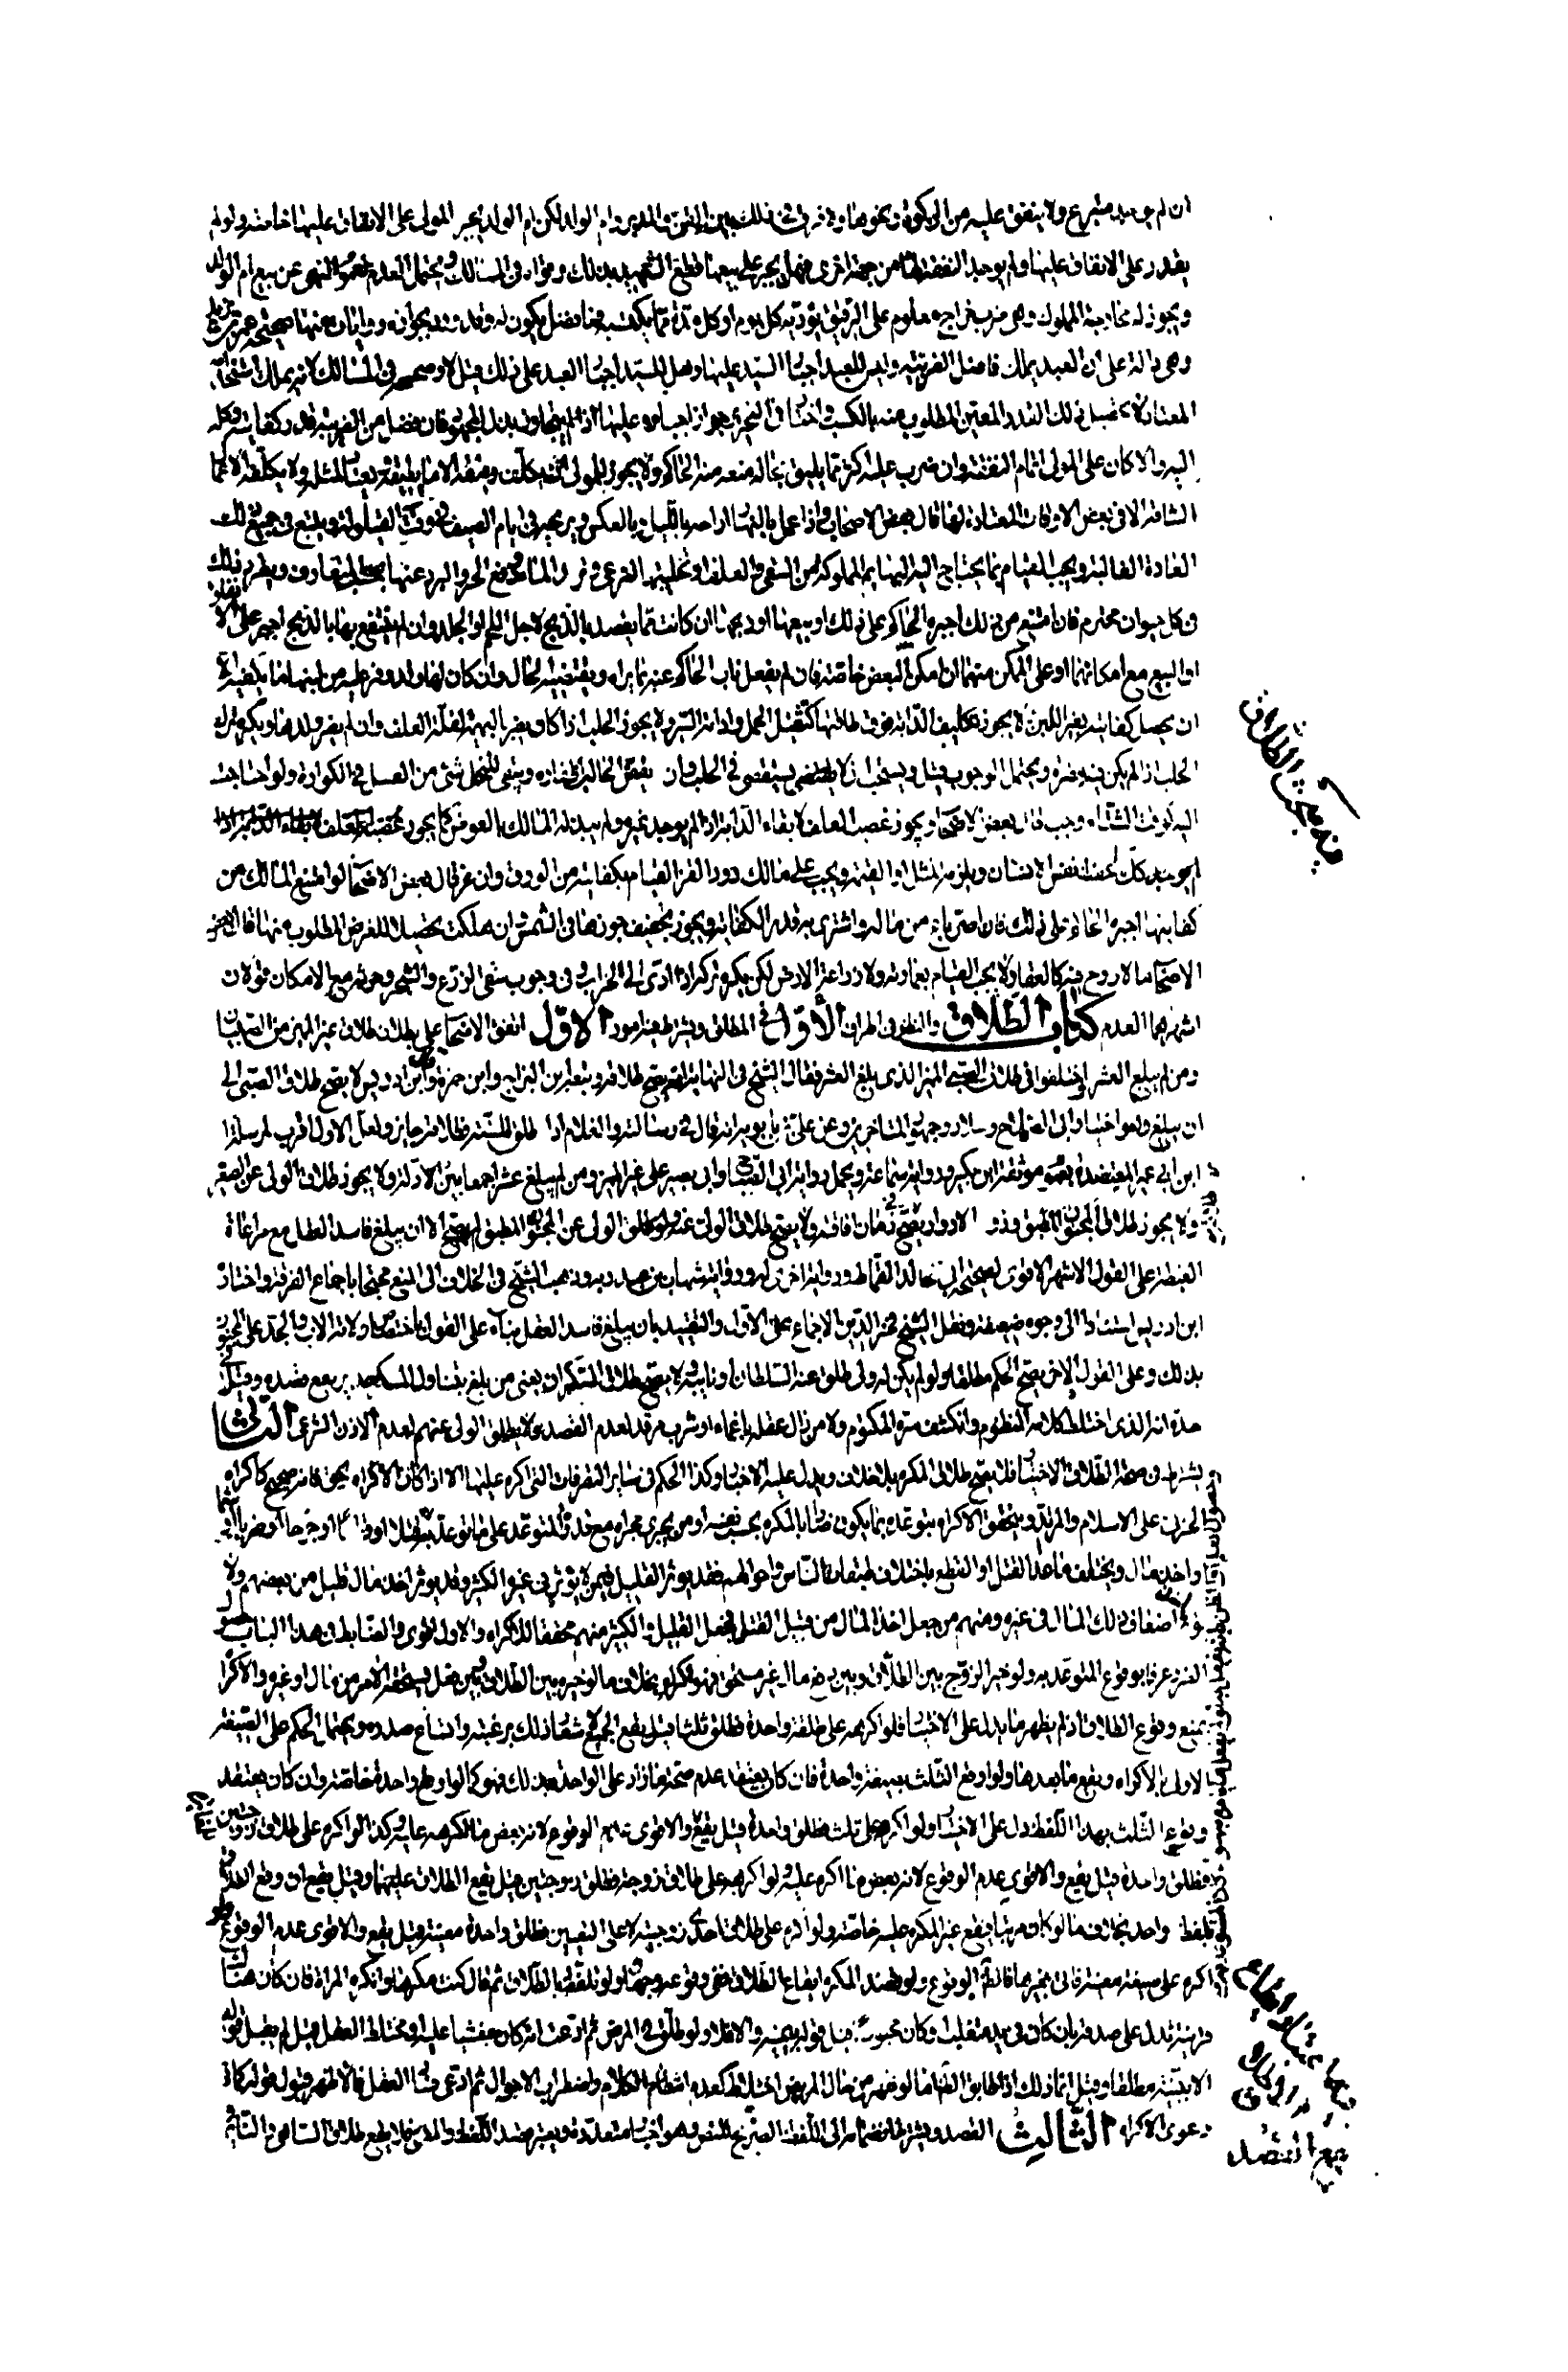 ان لم يوجد متبرع ولا ينفق عليه من الزكوة ونحوها ولا فرق في ذلك بين القن والمدبر وام الولد لكن ام الولد يجبر المولى على الانفاق عليها خاصة ولو لم
يقدر على الانفاق عليها ولم يوجد النفقة لها من جهة اخرى فهل يجبر على بيعها قطع الشهيد بذلك وقواه في المسالك ويحتمل العدم لعموم النهي عن بيع ام الولد
ويجوز له مخارجة المملوك وهي ضرب خراج معلوم على الرقيق يؤديه كل يوم او كل مدة مما يكتسبه فما فضل يكون له وقد ورد بجوازه روايات منها صحيحة عمر بن يزيد
وهي دالة على ان العبد يملك فاضل الضريبة وليس للعبد اجبار السيد عليها وهل للسيد اجبار العبد على ذلك قيل لا وصححه في المسالك لانه يملك استخدامه
المعتاد لا تحصيل ذلك القدر المعين المطلوب منه بالكسب واختار في التحرير جواز اجباره عليها اذا لم يتجاوز بذل المجهود فان فضل من الضريبة قدر كفايته وكله
اليه والا كان على المولى اتمام النفقة وان ضرب عليه اكثر مما يليق بحاله منعه منه الحاكم ولا يجوز للمولى ان يكلف رقيقه الا ما يطيقه يعتاد لمثله ولا يكلفه الاعمال
الشاقة الا في بعض الاوقات المعتادة لها قال بعض الاصحاب واذا عمل بالنهار اراحه بالليل وبالعكس ويريحه في ايام الصيف في وقت القيلولة ويتبع في جميع ذلك
العادة الغالبة ويجب القيام بما يحتاج اليه البهايم المملوكة من السقي والعلف او تخليتها لترعى وترد الماء ودفع الحر والبرد عنها بحسب المتعارف ويطرد ذلك
في كل حيوان محترم فان امتنع من ذلك اجبره الحاكم على ذلك او بيعها او ذبحها ان كانت مما يقصد بالذبح لاجل اللحم او الجلد وان لم ينتفع بها بالذبح اجبر على الانفاق
او البيع مع امكانهما او على الممكن منهما ان امكن البعض خاصة فان لم يفعل ناب الحاكم عنه بما يراه ويقتضيه الحال وان كان لها ولد وفر عليه من لبنها ما يكفيه الا
ان يحصل كفايته بغير اللبن لا يجوز تكليف الدابة فوق طاقتها كتثقيل الحمل وادامة السير ولا يجوز الحلب اذا كان يضر بالبهيمة لقلة العلف وان لم يضر ولدها ويكره ترك
الحلب اذا لم يكن فيه ضرر ويحتمل الوجوب قيل ويستحب ان لا يستقصى في الحلب وان يقص الحالب اظفاره ويبقى للنحل شئ من العسل في الكوارة ولو احتاجت
اليه كوقت الشتاء وجب قال بعض الاصحاب ويجوز غصب العلف لابقاء الدابة اذا لم يوجد غيره ولم يبذله المالك بالعوض كما يجوز غصبه العلف لابقاء الدابة اذا
لم يوجد لحفظ نفس الانسان ويلزمه المثل او القيمة ويجب على مالك دود القز القيام بكفايته من الورق وان عز قال بعض الاصحاب لو امتنع المالك من
كفايتها اجبره الحاكم على ذلك فان اصر باع من ماله واشترى به قدر الكفاية ويجوز تجفيف جوزها في الشمس وان هلكت تحصيلا للغرض المطلوب منها قال بعض
الاصحاب ما لا روح فيه كالعقار لا يجب القيام بعمارته ولا زراعة الارض لكن يكره تركه اذا ادى الى الخراب وفي وجوب سقي الزرع والشجر وحرثه مع الامكان قولان
اشهرهما العدم كتاب الطلاق والنظر في اطراف الاول في المطلق ويشترط فيه امور الاول اتفق الاصحاب على بطلان طلاق غير المميز من الصبيان
ومن لم يبلغ العشر واختلفوا في طلاق الصبي المميز الذي بلغ العشر فقال الشيخ في النهاية انه يصح طلاقه وتبعه ابن البراج وابن حمزة وقال ابن ادريس لا يصح طلاق الصبي الى
ان يبلغ وهو اختيار ابي الصلاح وسلار وجمهور المتاخرين وعن علي بن بابويه انه قال في رسالته والغلام اذا طلق للسنة فطلاقه جايز ولعل الاول اقرب لمرسلة
ابن ابي عمير المعتضدة بموثقة ابن بكير ورواية سماعة ويحمل رواية ابي الصباح وابي بصير على غير المميز ومن لم يبلغ عشرا جمعا بين الادلة ولا يجوز طلاق الولي عن الصغير
ولا يجوز طلاق المجنون المطبق وذو الادوار يصح في زمان افاقته ولا يصح طلاق الولي عنه ولو طلق الولي عن المجنون المطبق لم يصح الا ان يبلغ فاسد العقل مع مراعاة
الغبطة على القول الاشهر الاقوى لصحيحة ابي خالد القماط ورواية اخرى له ورواية شهاب بن عبد ربه وذهب الشيخ في الخلاف الى المنع محتجا باجماع الفرقة واختاره
ابن ادريس استنادا الى وجوه ضعيفة ونقل الشيخ فخر الدين الاجماع على الاول والتقييد بان يبلغ فاسد العقل بناء على القول باختصاص ولاية الاب والجد على المجنون
بذلك وعلى القول الاخر يصح الحكم مطلقا ولو لم يكن له ولي طلق عنه السلطان او نايبه ولا يصح طلاق السكران يعني من بلغ بتناول المسكر حد يرتفع قصده وقيل في
حده انه الذي اختلط كلامه المنظوم وانكشف سره المكتوم ولا من زال عقله باغماء او شرب مرقد لعدم القصد ولا يطلق الولي عنهم لعدم الاذن الشرعي الثاني
يشترط في صحة الطلاق الاختيار فلا يصح طلاق المكره بلا خلاف ويدل عليه الاخبار وكذا الحكم في سائر التصرفات التي اكره عليها الا اذا كان الاكراه بحق فانه صحيح كاكراه
الحربي على الاسلام والمرتد ويتحقق الاكراه بتوعده بما يكون ضارا بالمكره بحسب نفسه او من يجري مجراه مع قدرة المتوعد على ما توعد به قتلا او جرحا او ضربا او شتما
واخذ مال ويختلف ما عدا القتل والقطع باختلاف طبقات الناس واحوالهم فقد يؤثر القليل فيمن لا يؤثر في غيره الكثير وقد يؤثر اخذ مال قليل من بعضهم ولا
يؤثر اضعاف ذلك المال في غيره ومنهم من جعل اخذ المال من قبيل القتل فجعل القليل والكثير منه محققا للاكراه والاول اقوى والضابط في هذا الباب حصول
الضرر عرفا بوقوع المتوعد به ولو خير الزوج بين الطلاق وبين دفع مال غير مستحق فهو اكراه بخلاف ما لو خيره بين الطلاق وبين فعل يستحقه الامر من مال او غيره والاكراه
يمنع وقوع الطلاق اذا لم يظهر ما يدل على الاختيار فلو اكرهه على طلقة واحدة فطلق ثلثا قيل يقع الجميع لاشعار ذلك برغبته واتساع صدره ويحتمل الحكم على الصيغة
الاولى بالاكراه ويقع ما بعدها ولو اوقع الثلث بصيغة واحدة فان كان يعتقد عدم صحة ما زاد على الواحدة بذلك فهو كما لو اوقع واحدة خاصة وان كان يعتقد
وقوع الثلث بهذا اللفظ دل على الاختيار ولو اكرهه على ثلث فطلق واحدة قيل يقع والاقوى عدم الوقوع لانه بعض ما اكرهه عليه وكذا لو اكره على طلاق زوجتين
فطلق واحدة قيل يقع والاقوى عدم الوقوع لانه بعض ما اكره عليه ولو اكرهه على طلاق زوجة فطلق زوجتين قيل يقع الطلاق عليهما وقيل يقع ان وقع الطلاق
بلفظ واحد بخلاف ما لو كان مرتبا فيقع غير المكره عليه خاصة ولو اكره على طلاق احدى زوجتيه لا على التعيين فطلق واحدة معينة قيل يقع والاقوى عدم الوقوع ولو
اكره على صيغة معينة فاتى بغيرها قالظاهر الوقوع ولو قصد المكره ايقاع الطلاق ففي وقوعه وجهان ولو تلفظ بالطلاق ثم قال كنت مكرها وانكره المراة فان كان هناك
قرينة تدل على صدقه بان كان في يد متغلب او كان محبوسا قبل قوله بيمينه والا فلا ولو طلق في المرض ثم ادعى انه كان مغشيا عليه او مختلط العقل قيل لم يقبل قوله
الا ببينة مطلقا وقيل انما ذلك اذا طابق الظاهر اما لو ظهر من حال المريض اختلاط كعدم انتظام الكلام واضطراب الاحوال ثم ادعى فساد العقل فالاظهر قبول قوله كما في
دعوى الاكراه الثالث القصد ويشترط انضمامه الى اللفظ الصريح للنص وهو اخبار متعددة ويعتبر قصد اللفظ والمعنى فلا يقع طلاق الساهي والنائم
فيه بحث الطلاق